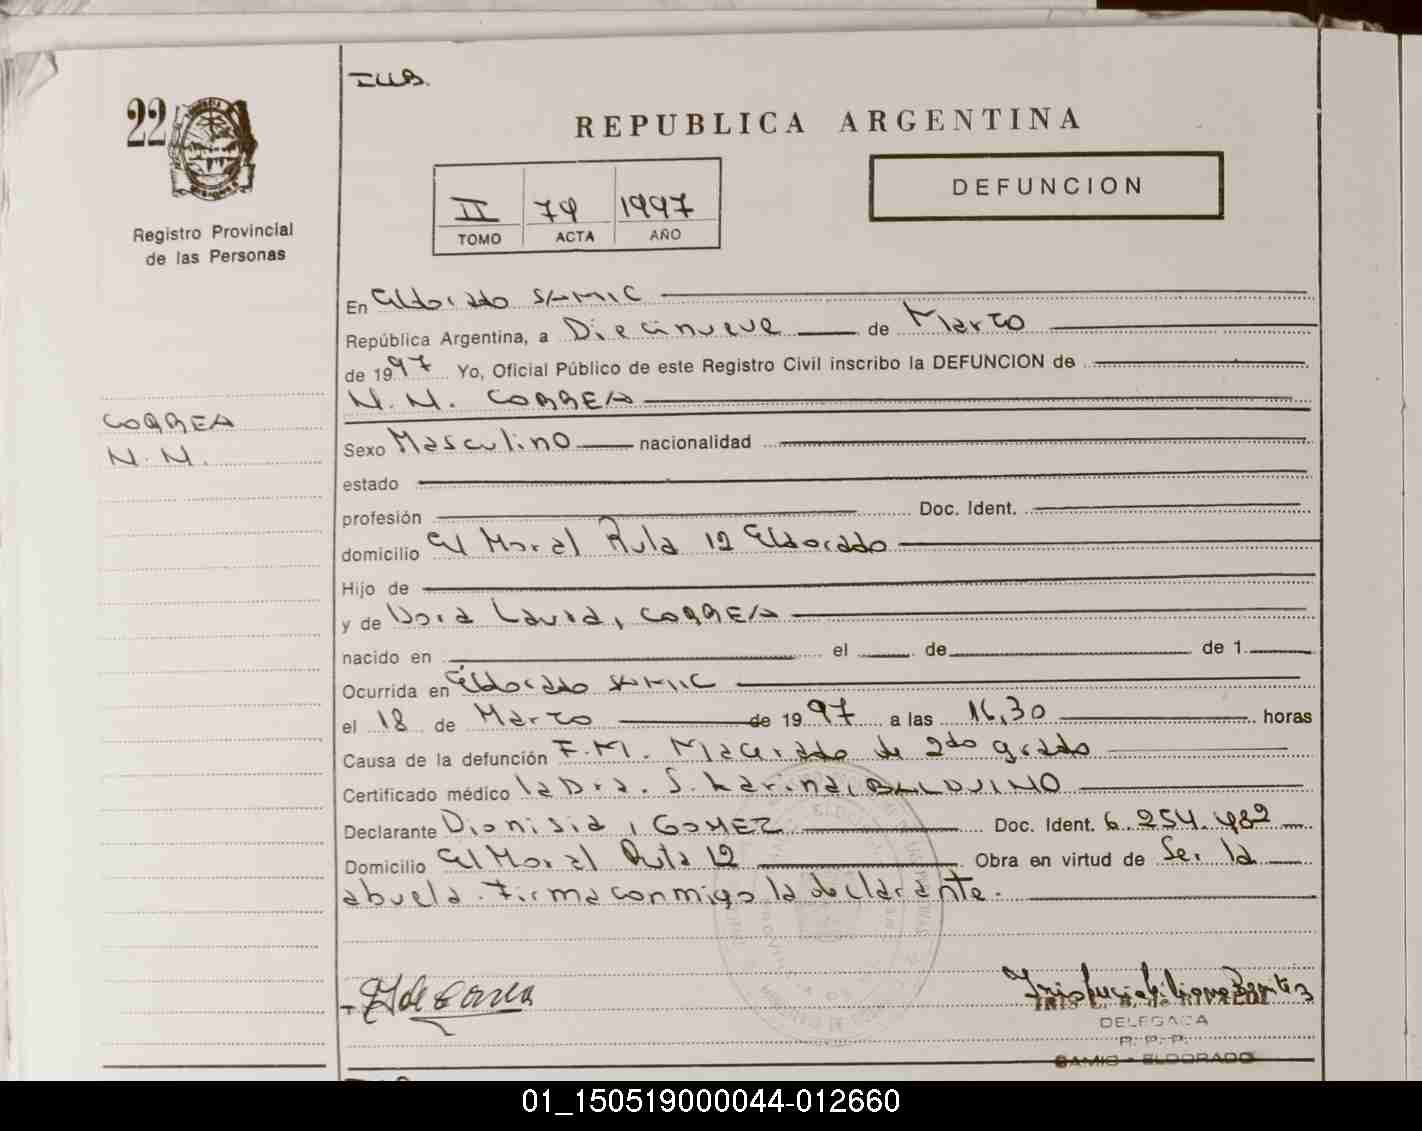 I.U.B.
22
REPUBLICA ARGENTINA
II 79 1997
TOMO ACTA AÑO
DEFUNCION
Registro Provincial
de las Personas
En Eldorado SAMIC
República Argentina, a Diecinueve de Marzo
de 1997 Yo, Oficial Público de este Registro Civil inscribo la DEFUNCION de
N.N. CORREA
CORREA
N.N.
Sexo Masculino nacionalidad
estado
profesión Doc. Ident.
domicilio El Moral Ruta 12 Eldorado
Hijo de
y de Dora Laura, CORREA
nacido en el de de 1
Ocurrida en Eldorado SAMIC
el 18 de Marzo de 1997 a las 16,30 horas
Causa de la defunción F.M. Macerado de 2do grado
Certificado médico la Dra. S. Karina, BALDUINO
Declarante Dionisia, GOMEZ Doc. Ident. 6.254.982
Domicilio El Moral Ruta 12 Obra en virtud de Ser la
abuela. Firma conmigo la declarante.
G de Correa
DELEGADA
R. P. P.
SAMIC - ELDORADO
01_150519000044-012660